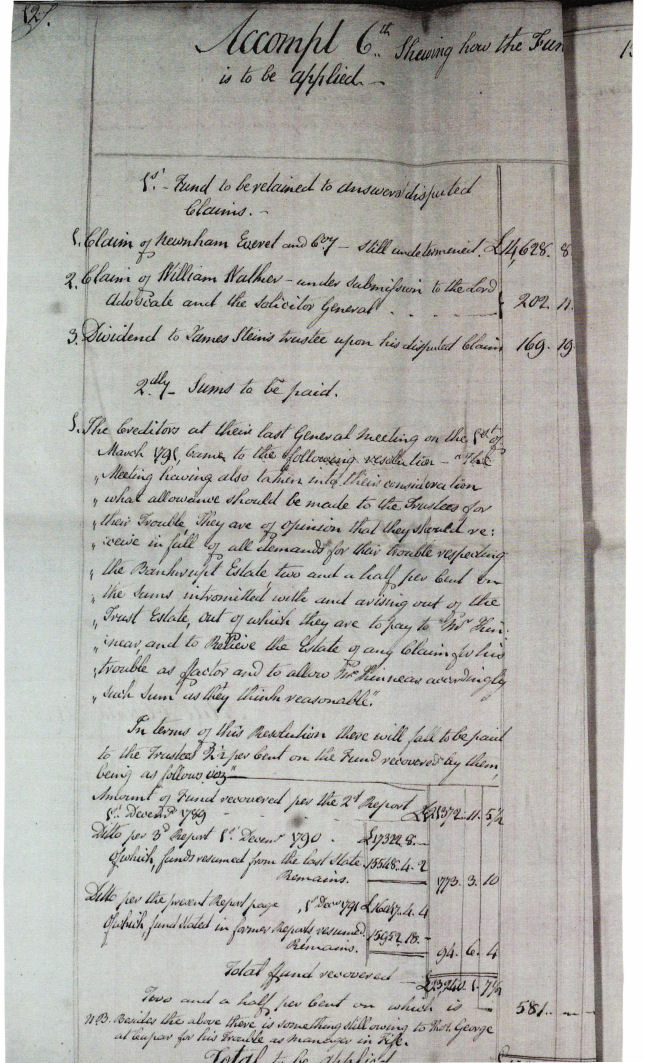 12.
Accompt 6th. Shewing how the Fun
is to be applied.
1st. - Fund to be retained to answer disputed
Claims. -
1. Claim of Newnham Everet and Coy - still undetermined. £14,628. 8
2. Claim of William Walker - under submission to the Lord
Advocate and the Solicitor General . . . . 202. 11.
3. Dividend to James Stein's trustee upon his disputed Claim 169. 19
2dly - Sums to be paid.
1. The Creditors at their last General Meeting on the 1st of
March 1791, came to the following resolution - "The
"Meeting having also taken into their consideration
"what allowance should be made to the Trustees for
"their Trouble, They are of opinion that they should re:
"ceive in full of all demands for their trouble respecting
"the Bankrupt Estate two and a half per Cent on
"the Sums intromitted with and arising out of the
"Trust Estate, out of which they are to pay to Mr. Kin:
"near, and to Relieve the Estate of any Claim for his
"trouble as factor and to allow Mr. Kinnear accordingly
"such Sum as they think reasonable".
In terms of this Resolution there will fall to be paid
to the Trustees 2½ per Cent on the Fund recovered by them,
being as follows viz
Amount of Fund recovered per the 2d Report
1st. Decemr. 1789 - £21372. 11. 5½
Ditto per 3d Report 1st. Decemr. 1790 - £17322. 8. -
of which, funds resumed from the last State 15548. 4. 2
Remains. 1773. 3. 10
Ditto per the present Report page 1st Decr 1791 £16047. 4. 4
Of which, fund stated in former Reports resumed 15952. 18. -
Remains. 94. 6. 4
Total fund recovered - £23240. 1. 7½
Two and a half per Cent on which is - 581. - -
N.B. Besides the above there is something still owing to George
at Cupar for his Trouble as manager in Fife.
Total to be applied